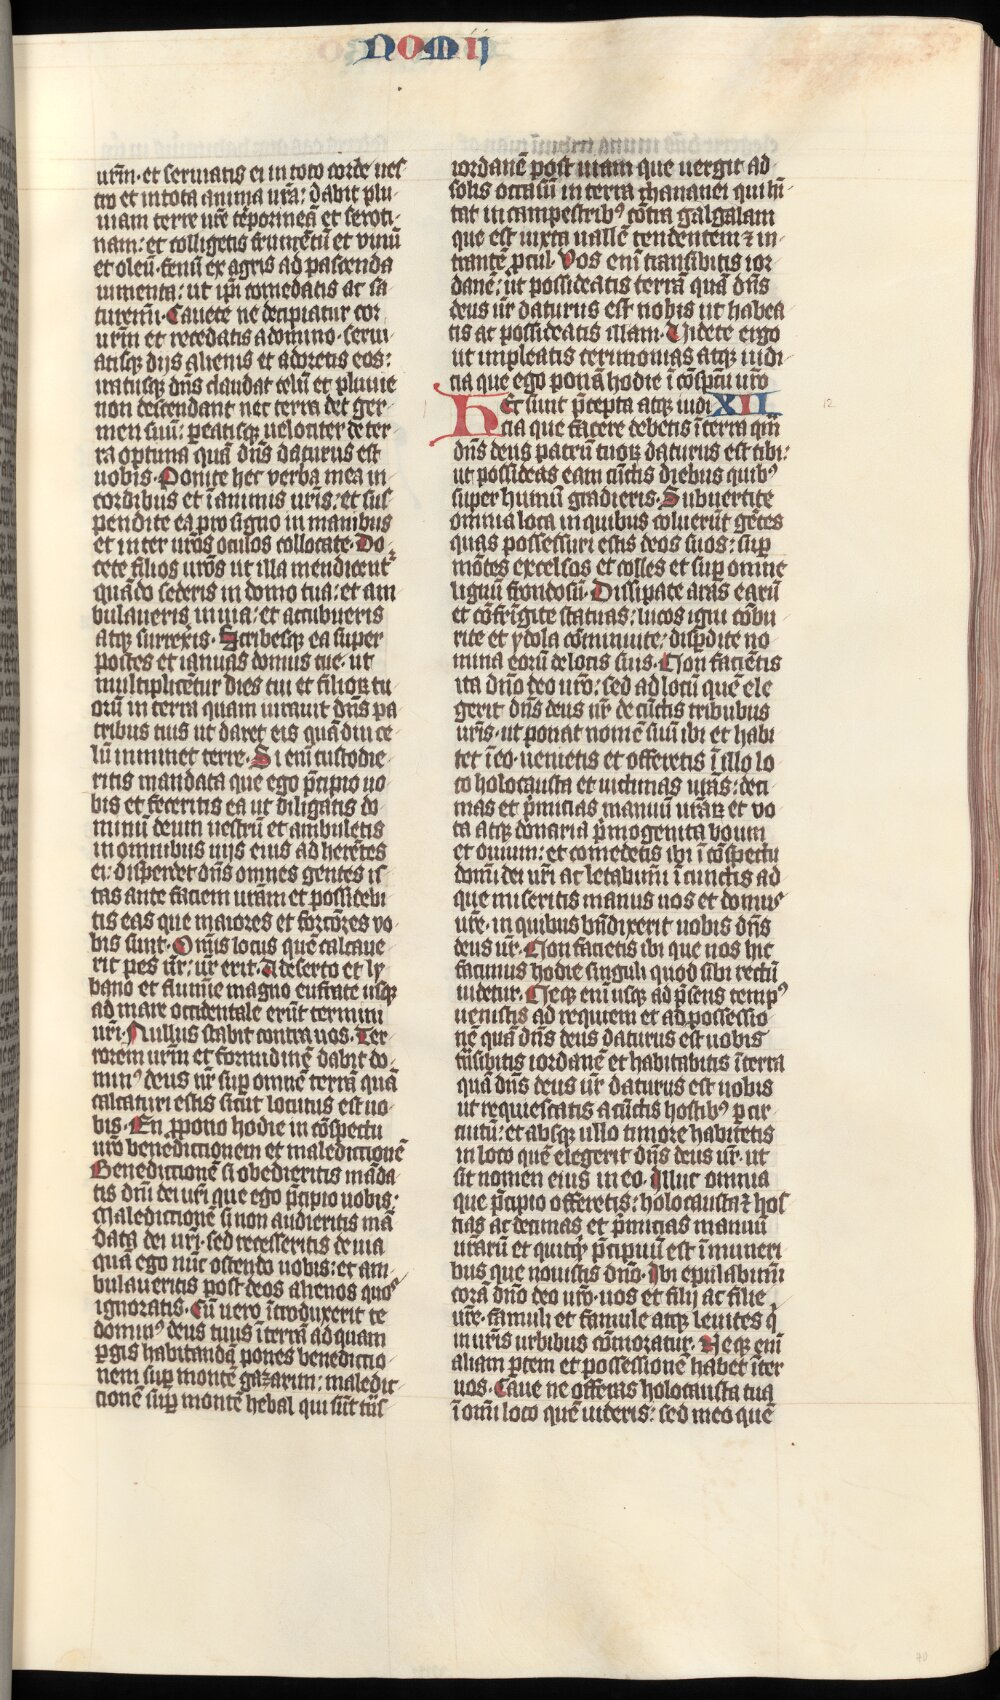 nomij
urm̄· et seruiatis ei in toto corde ues
tro et in tota anima ur̄a: dabit plu
uiam terre ur̄e tēporiueā et seroti
nam: et colligetis frumētū et uinū
et oleū· fenū ex agris ad pascenda
iumenta: ut ip̄i comedatis ac sa
turemī· Cauete ne decipiatur cor
ur̄m et recedatis a domino· serui
atisqꝫ dijs alienis et adoretis eos:
iratusqꝫ dn̄s claudat celū et pluuie
non descendant nec terra det ger
men suū: peatisqꝫ uelociter de ter
ra optima quā dn̄s daturus est
uobis· Ponite hec uerba mea in
cordibus et ī animis ur̄is: et sus
pendite ea pro signo in manibus
et inter ur̄os oculos collocate· Do
cete filios ur̄os ut illa meditent᷑
quādo sederis in domo tua: et am
bulaueris in uia: et accubueris
atqꝫ surrexis· Scribesqꝫ ea super
postes et ianuas domus tue· ut
multiplicētur dies tui et filioꝝ tu
orū in terra quam iurauit dn̄s pa
tribus tuis ut daret eis quādiu ce
lū imminet terre· Si enī custodie
ritis mandata que ego p̄cipio uo
bis et feceritis ea ut diligatis do
minū deum uestrū et ambuletis
in omnibus uijs eius adherētes
ei: disperdet dn̄s omnes gentes is
tas ante faciem ur̄am et possidebi
tis eas que maiores et forcōres uo
bis sunt· Om̄is locus quē calcaue
rit pes ur̄: ur̄ erit· A deserto et ly
bano et flumīe magno eufrate usqꝫ
ad mare occidentale erūt termini
ur̄i· Nullus stabit contra uos· Ter
rorem ur̄m et formidinē dabit do
minꝰ deus ur̄ sup omnē terrā quā
calcaturi estis sicut locutus est uo
bis· En ꝓpono hodie in cōspectu
ur̄o benedictionem et maledictionē
Benedictionē si obedieritis māda
tis dn̄i dei ur̄i que ego p̄cipio uobis:
Maledictionē si non audieritis mā
data dei ur̄i· sed recesseritis de uia
quā ego nūc ostendo uobis: et am
bulaueritis post deos alienos quos
ignoratis· Cū uero ītroduxerit te
dominꝰ deus tuus ī terrā ad quam
ꝑgis habitandā pones benedictio
nem sup montē garizim: maledic
tionē sup montē hebal qui sūt trās
iordanē post uiam que uergit ad
solis occasū in terra chananei qui hī
tat in campestribꝰ cōtra galgalam
que est iuxta uallē tendentem ⁊ in
trantē ꝓcul· Vos enī transibitis ior
danē: ut possideatis terrā quā dn̄s
deus ur̄ daturus est nobis ut habea
tis ac possideatis illam· Videte ergo
ut impleatis cerimonias atqꝫ iudi
cia que ego ponā hodie ī cōspcū ur̄o
Hec sunt p̄cepta atqꝫ iudi XII 12
cia que facere debetis ī terra quā
dn̄s deus patrū tuoꝝ daturus est tibi:
ut possideas eam cūctis diebus quibꝰ
super humū gradieris· Subuertite
omnia loca in quibus coluerūt gētes
quas possessuri estis deos suos: sup
mōtes excelsos et colles et sup omne
lignū frondosū· Dissipate aras earū
et cōfrīgite statuas: lucos igni cōbu
rite et ydola cōminuite: disꝑdite no
mina eorū de locis suis· Non facietis
ita dn̄o deo ur̄o: sed ad locū quē ele
gerit dn̄s deus ur̄ de cūctis tribubus
ur̄is· ut ponat nomē suū ibi et habi
tet ī eo· uenietis et offeretis ī illo lo
co holocausta et uictimas ur̄as: deci
mas et p̄micias manuū ur̄aꝝ et uo
ta atqꝫ donaria p̄mogenita boum
et ouium: et comedetis ibi ī cōspectu
domī dei ur̄i ac letabimī ī cunctis ad
que miseritis manus uos et domus
ur̄e· in quibus bn̄dixerit uobis dn̄s
deus ur̄· Non facietis ibi que nos hic
facimus hodie singuli quod sibi rectū
uidetur· Neqꝫ enī usqꝫ ad p̄sens tempꝰ
uenistis ad requiem et ad possessio
nē quā dn̄s deus daturus est uobis
trāsibitis iordanē et habitabitis ī terra
quā dn̄s deus ur̄ daturus est uobis
ut requiescatis a cūctis hostibꝰ ꝑ cir
cuitū: et absqꝫ ullo timore habitetis
in loco quē elegerit dn̄s deus ur̄· ut
sit nomen eius in eo· Illuc omnia
que p̄cipio offeretis: holocausta ⁊ hos
tias ac decimas et p̄micias manuū
ur̄arū et quicqͥd p̄cipuū est ī muneri
bus que nouistis dn̄o· Ibi epulabimī
corā dn̄o deo ur̄o· uos et filij ac filie
ur̄e· famuli et famule atqꝫ leuites qͥ
in ur̄is urbibus cōmoratur· Neqꝫ enī
aliam ꝑtem et possessionē habet īter
uos· Caue ne offeras holocausta tua
ī omī loco quē uideris: sed in eo quē
40